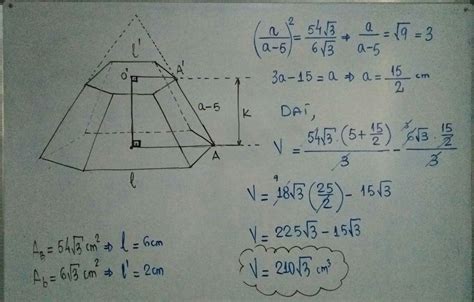 l'
O' A'
a-5
K
A
l
A_B = 54√3 cm² ⇒ l = 6cm
A_b = 6√3 cm² ⇒ l' = 2cm
(a/(a-5))² = 54√3/6√3 ⇒ a/(a-5) = √9 = 3
3a-15 = a ⇒ a = 15/2 cm
DAÍ,
V = 54√3·(5+15/2)/3 - 6√3·15/2/3
V = 18√3 (25/2) - 15√3
V = 225√3 - 15√3
V = 210√3 cm³